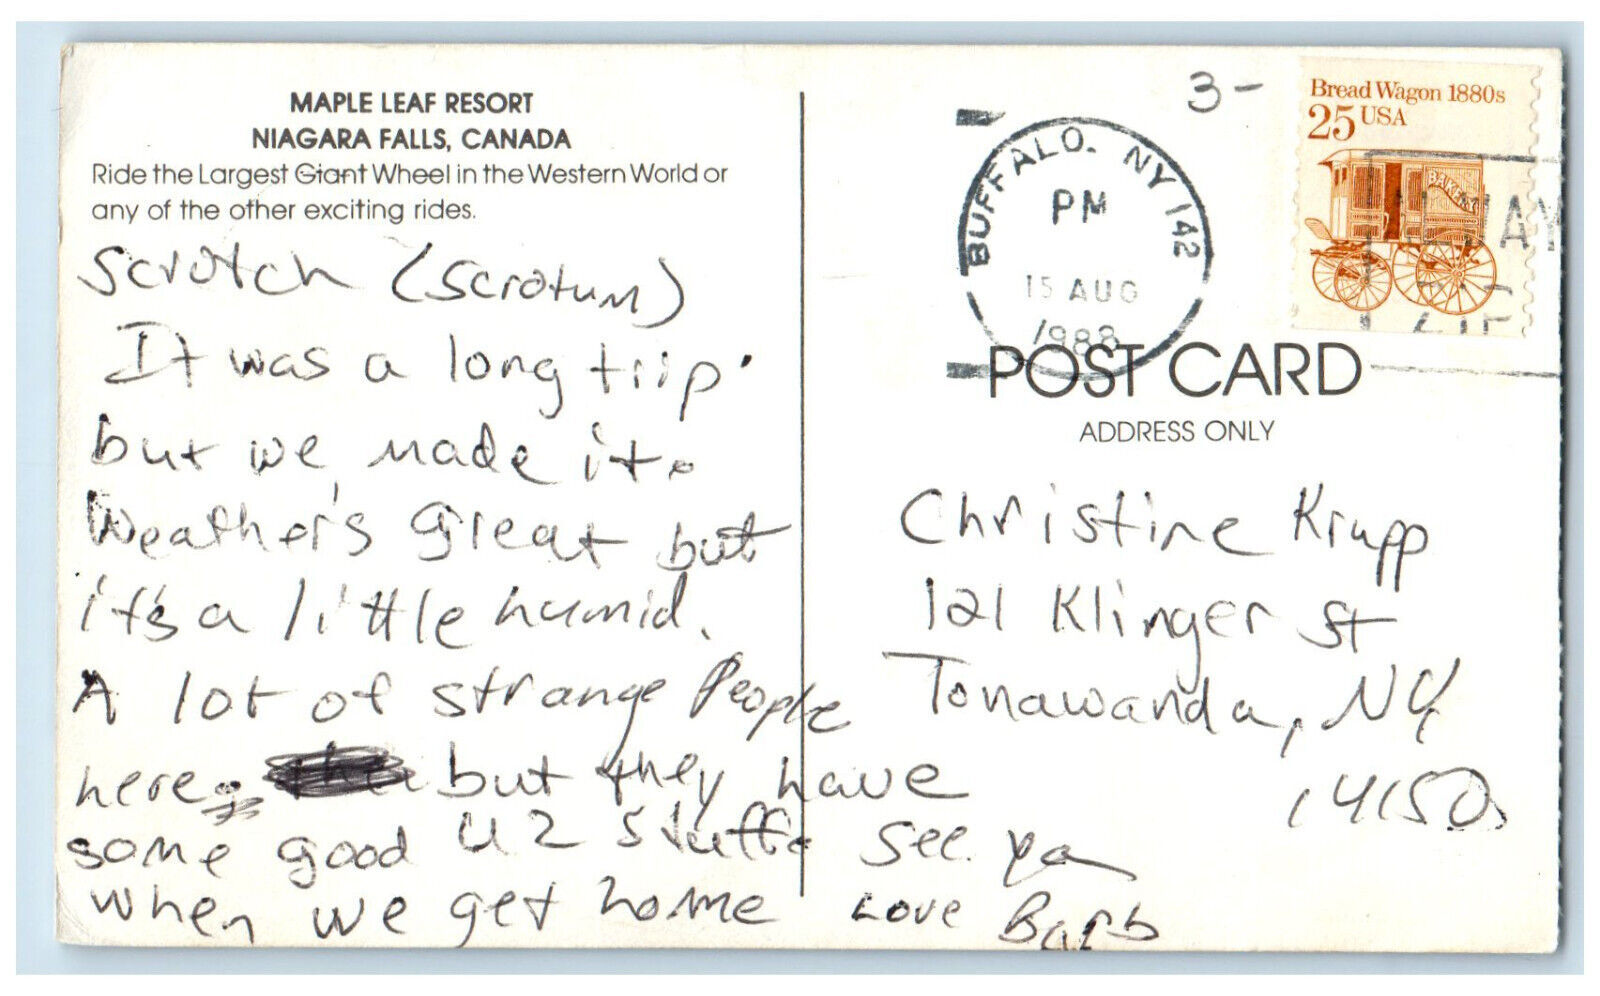 MAPLE LEAF RESORT
NIAGARA FALLS, CANADA
Ride the Largest Giant Wheel in the Western World or
any of the other exciting rides.
Scrotch (scrotum)
It was a long trip
but we made it.
Weather's great but
it's a little humid.
A lot of strange People
here. but they have
some good U2 stuff. See ya
when we get home Love Barb
3-
Bread Wagon 1880s
25 USA
BAKERY
BUFFALO. NY 142
PM
15 AUG
1988
ZIP
POST CARD
ADDRESS ONLY
Christine Krupp
121 Klinger St
Tonawanda, NY
14150